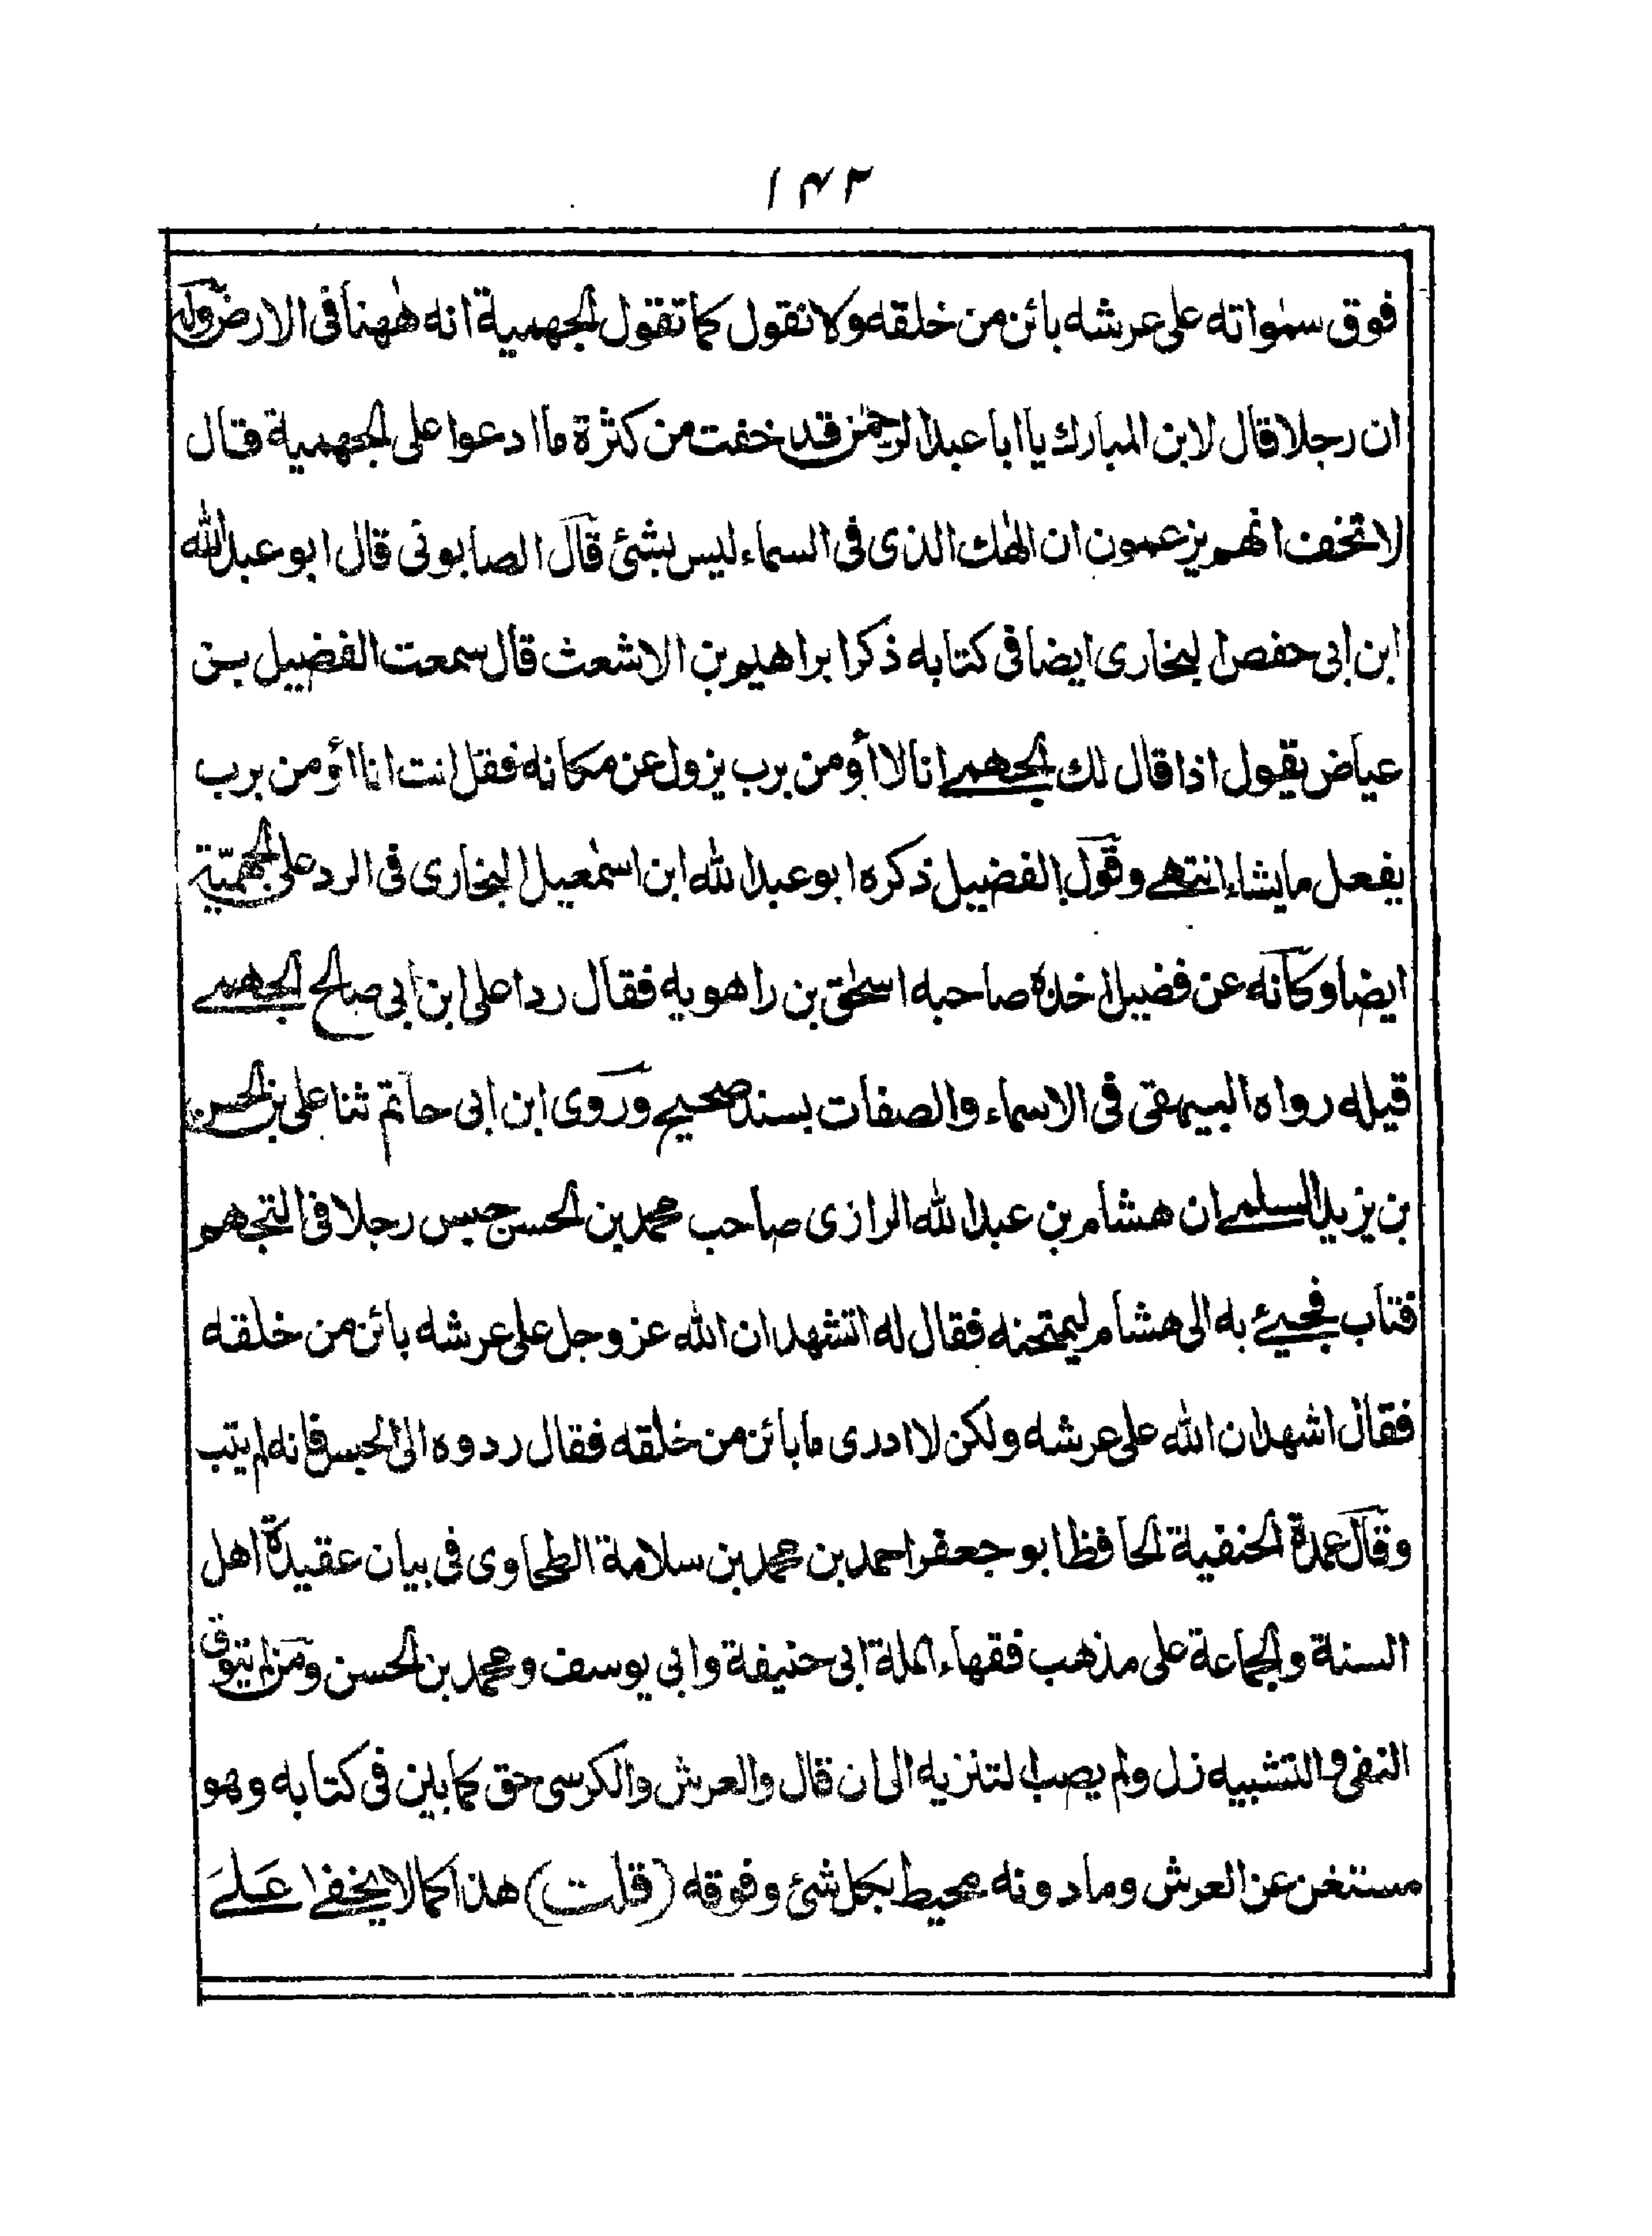 ١٤٢
فوق سمٰواته على عرشه بائن من خلقه ولا نقول كما تقول الجهمية انه هٰهنا فى الارض وله
ان رجلا قال لابن المبارك يا ابا عبد الرحمٰن قد خفت من كثرة ما ادعوا على الجهمية قال
لا تخف انهم يزعمون ان الٰهك الذى فى السماء ليس بشئ قال الصابونى قال ابو عبد الله
ابن ابى حفص البخارى ايضا فى كتابه ذكر ابراهيم بن الاشعث قال سمعت الفضيل بن
عياض يقول اذا قال لك الجهمے انا لا اؤمن برب يزول عن مكانه فقل انت انا اؤمن برب
يفعل ما يشاء انتهے وقول الفضيل ذكره ابو عبد الله ابن اسمٰعيل البخارى فى الرد على الجهميّة
ايضا وكانه عن فضيل اخذه صاحبه اسحٰق بن راهويه فقال ردا على ابن ابى صالح الجهمے
قيله رواه البيهقى فى الاسماء والصفات بسند صحيح وروى ابن ابى حاتم ثنا على بن الحسن
بن يزيد السلمے ان هشام بن عبد الله الرازى صاحب محمد بن الحسن حبس رجلا فى التجهم
فتاب فجيئ به الى هشام ليمتحنه فقال له اتشهد ان الله عز وجل على عرشه بائن من خلقه
فقال اشهد ان الله على عرشه ولكن لا ادرى ما بائن من خلقه فقال ردوه الى الحبس فانه لم يتب
وقال عمدة الحنفية الحافظ ابو جعفر احمد بن محمد بن سلامة الطحاوى فى بيان عقيدة اهل
السنة والجماعة على مذهب فقهاء الملة ابى حنيفة وابى يوسف ومحمد بن الحسن ومن لم يتوق
النفى والتشبيه زل ولم يصب التنزيه الى ان قال والعرش والكرسى حق كما بين فى كتابه وهو
مستغن عن العرش وما دونه محيط بكل شئ وفوقه (قلت) هذا كما لا يخفے علے